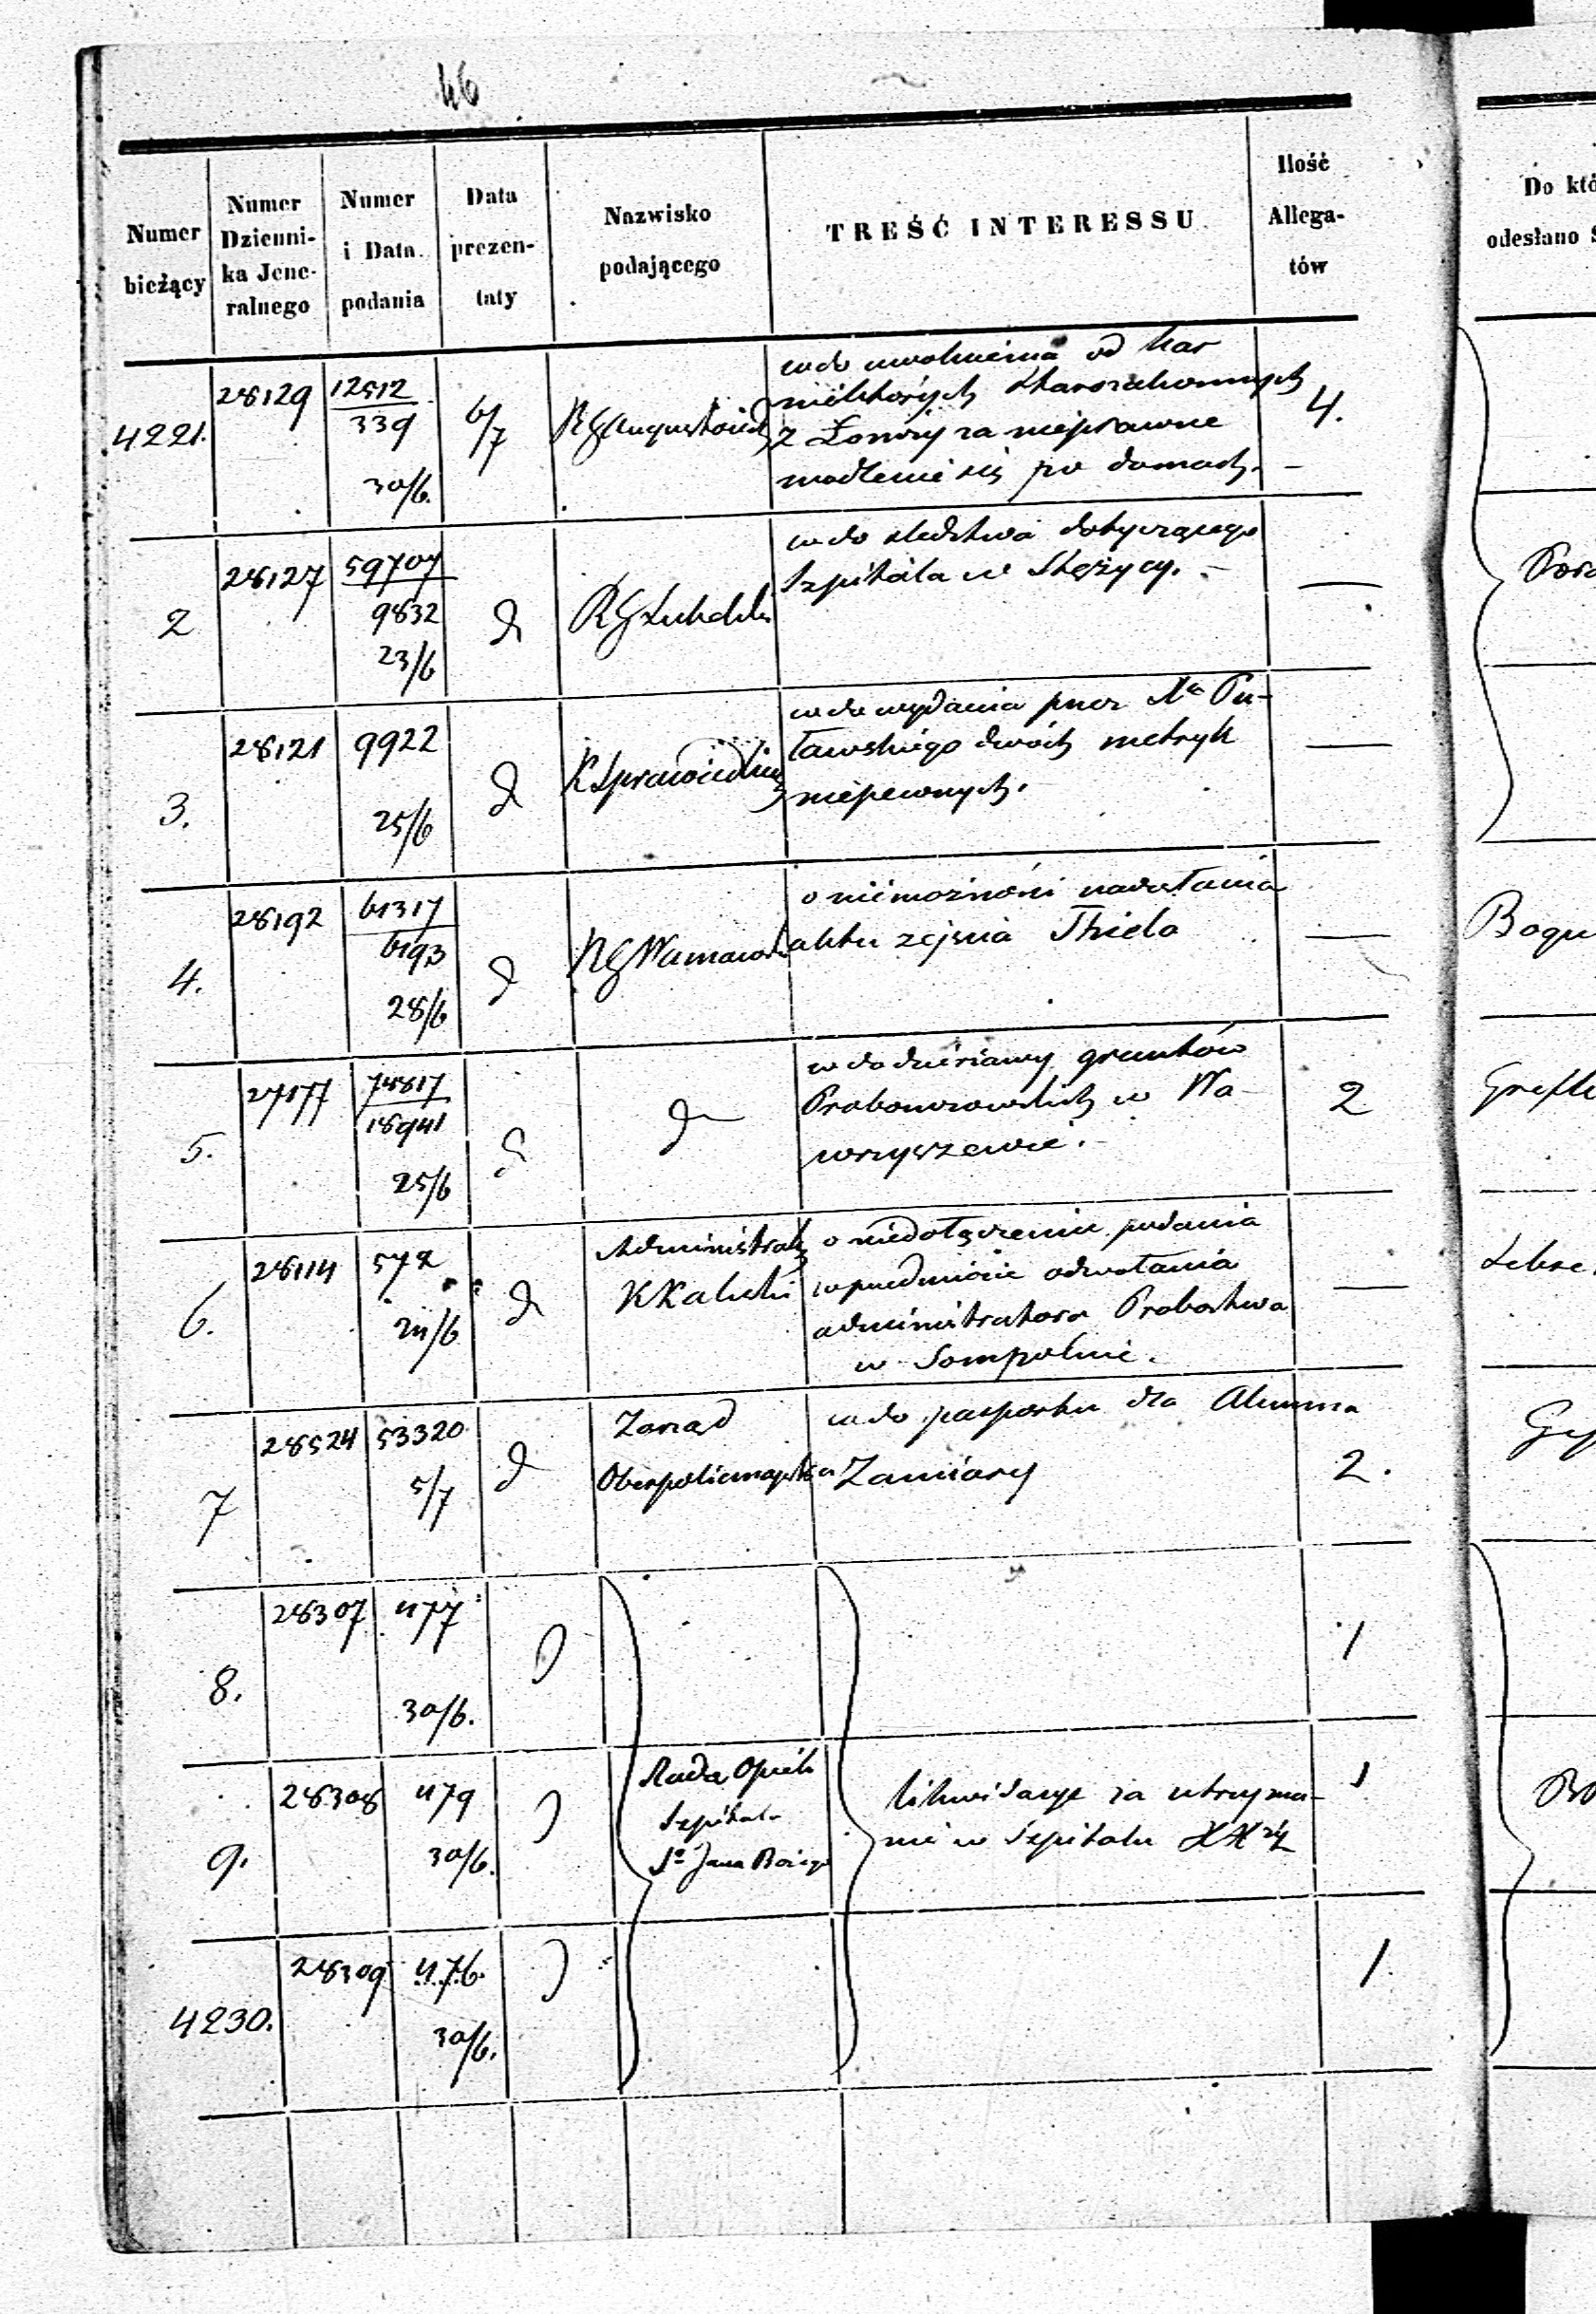 46
Numer bieżący
Numer Dzienni-ka Jene-ralnego
Numer i Data podania
Data prezen-taty
Nazwisko podającego
TREŚĆ INTERESSU
Ilość Allega-tów
Do któ
odesłano S
4221.
28129
12512
339
30/6.
6/7
RGAugustowsk
wdo uwolnienia od kar
niektórych starozakonnych
z Łomży za nieprawne
modlenie się po domach. –
4.
2
28127
59707
9832
23/6
d
RGLubelski
wdo śledztwa dotyczącego
Szpitala w Stężycy. –
—
3.
28121
9922
25/6
d
KSprawiedliw
wdo wydania przez Xa Pu-
ławskiego dwóch metryk
niepewnych.
—
4.
28192
61317
6193
28/6
d
RGWarszaws
o niemożności nadesłania
aktu zejścia Thiela
—
Bogu
5.
27177
74817
18941
25/6
d
d
wdo dzierżawy gruntów
Proboszczowskich w Wa-
wrzyszewie. –
2
6.
28114
572
24/6
d
Administrat
KKaliski
o niedołączenie podania
w przedmiocie odwołania
administratora Probostwa
w Sompolnie.
—
7
28524
53320
5/7
d
Zarząd
Oberpolicmajstra
wdo paszportu dla Alumna
Zamiary
2.
8.
28307
477
30/6.
1
9.
28308
479
30/6.
Rada Opiek
Szpitala
Sgo Jana Bożego
likwidacye za utrzyma-
nie w Szpitalu XXży
1
4230.
28309
476.
30/6.
1